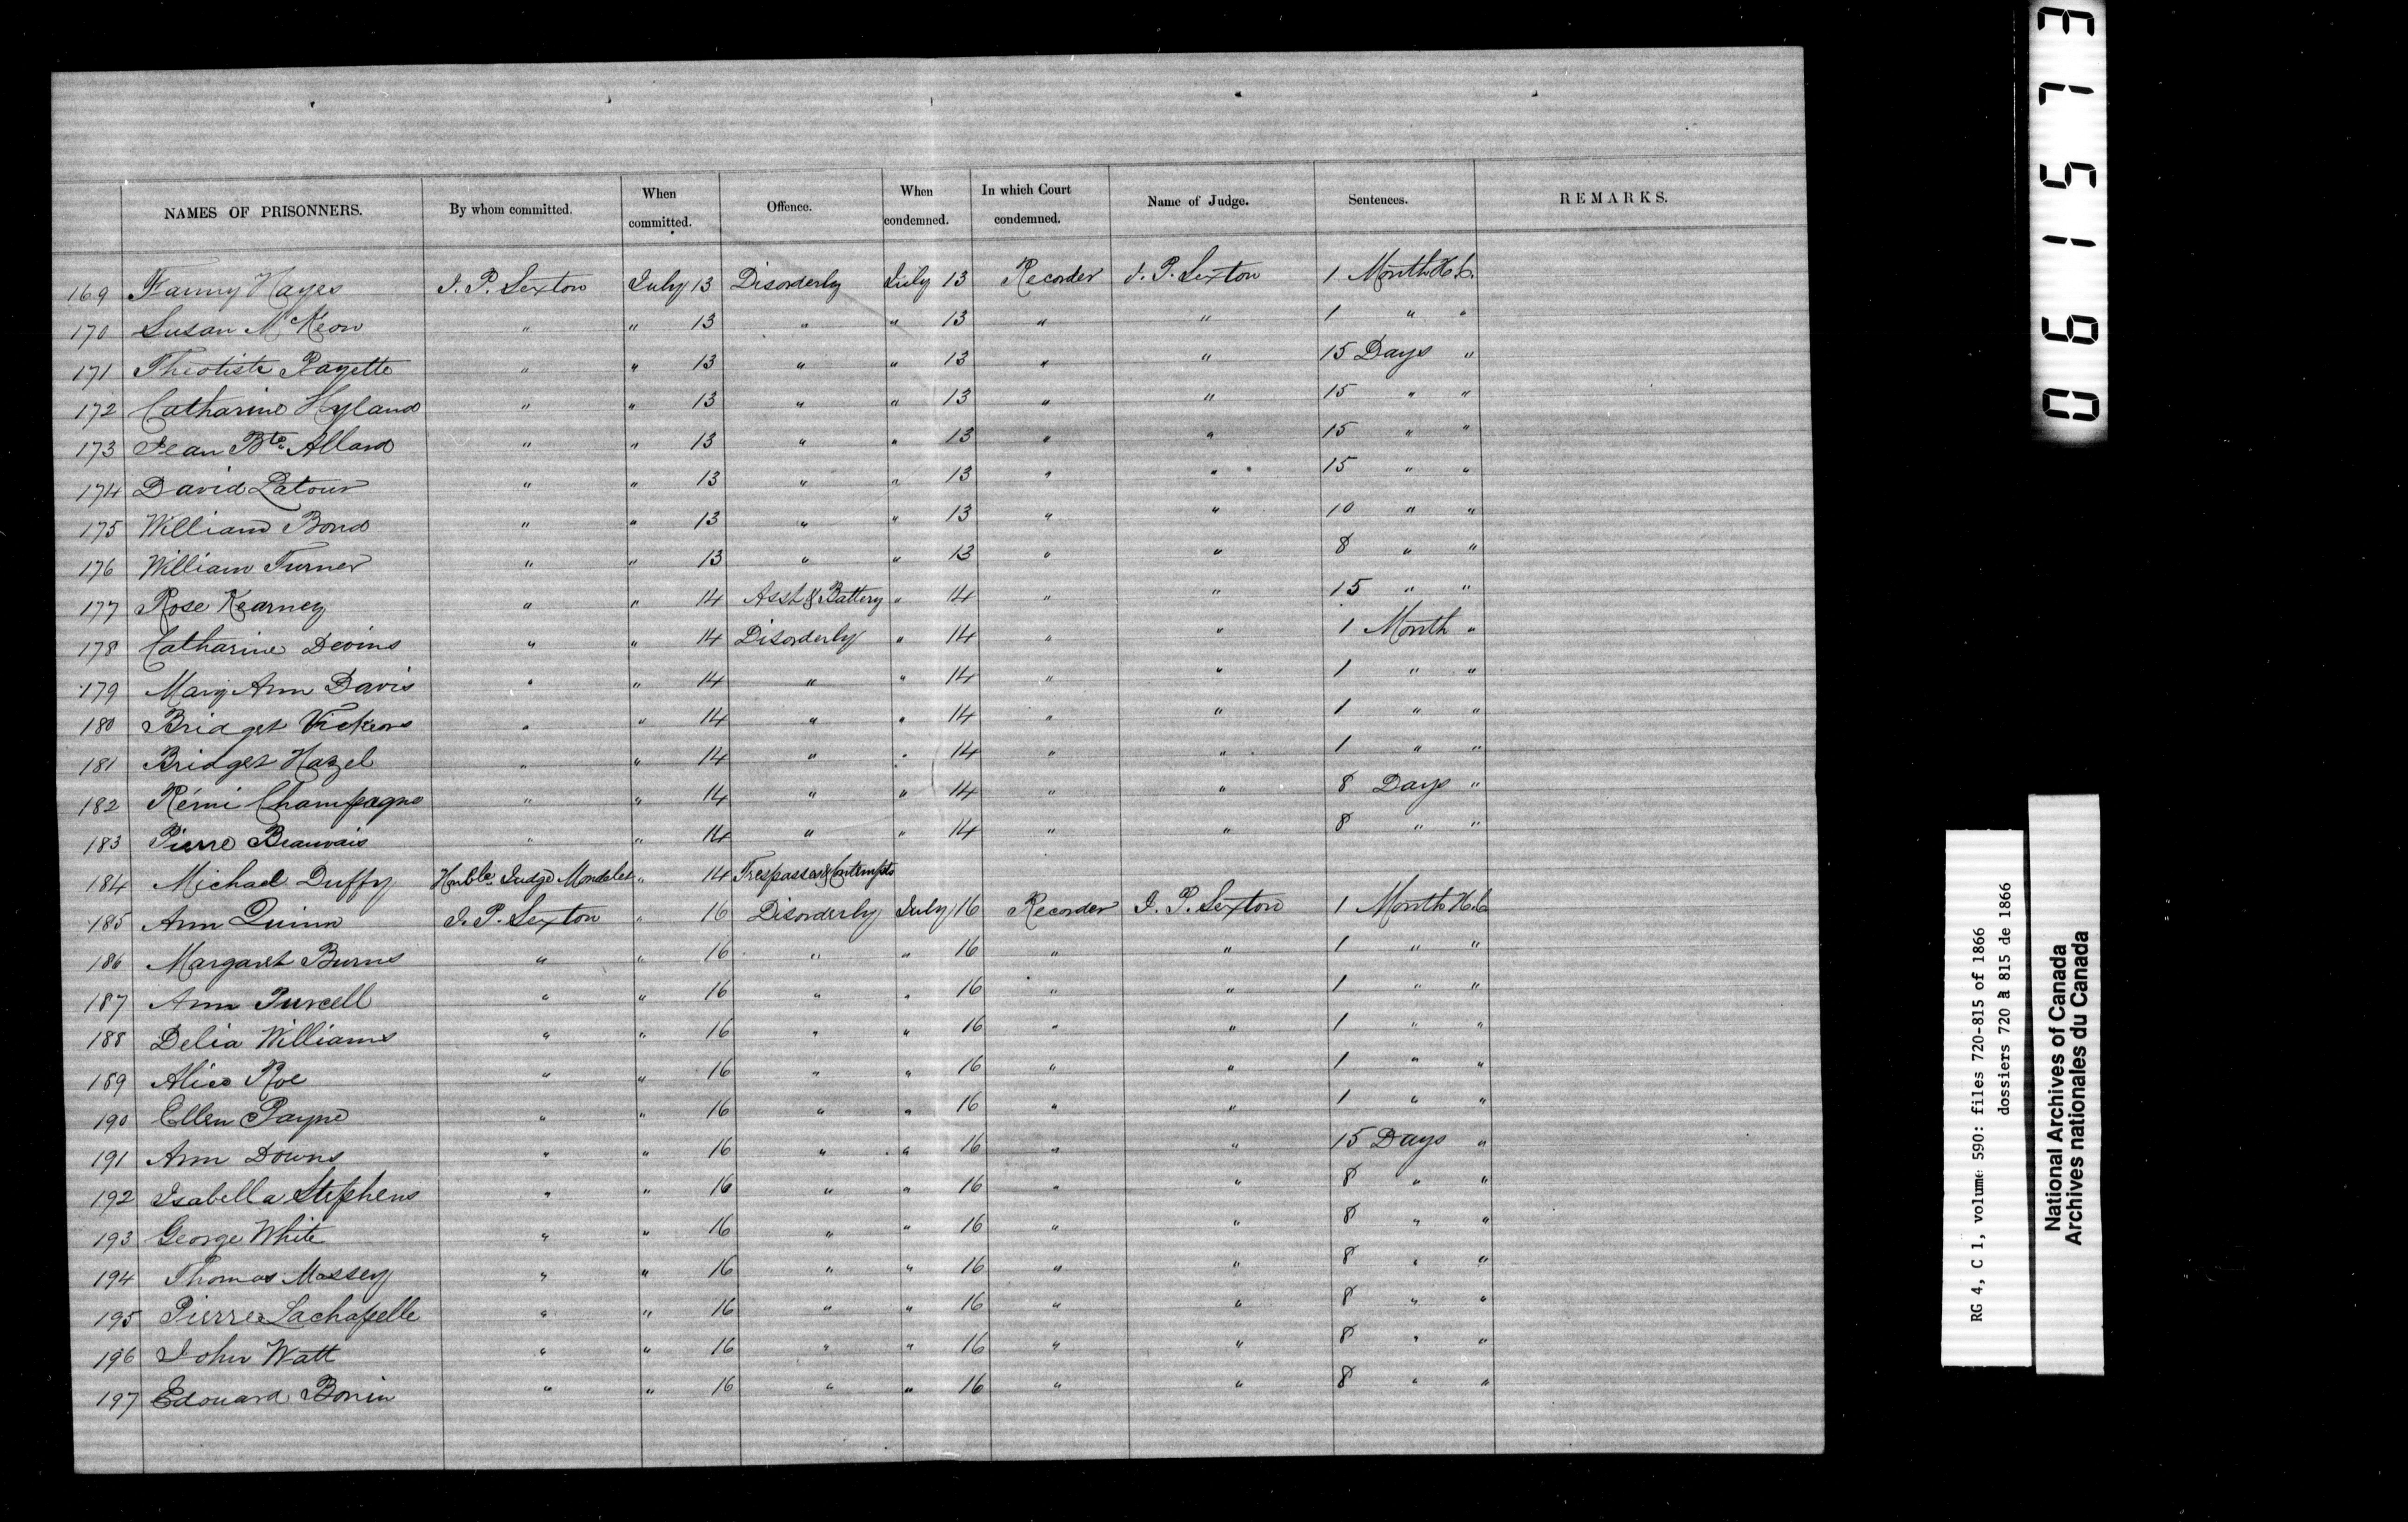 NAMES OF PRISONNERS. By whom committed. When committed. Offence. When condemned. In which Court condemned. Name of Judge. Sentences. REMARKS.
169 Fanny Hayes J. P. Sexton July 13 Disorderly July 13 Recorder J. P. Sexton 1 Month H. L.
170 Susan McKeon " " 13 " " 13 " " 1 " "
171 Théotiste Payette " " 13 " " 13 " " 15 Days "
172 Catharine Hyland " " 13 " " 13 " " 15 " "
173 Jean Bte Allard " " 13 " " 13 " " 15 " "
174 David Latour " " 13 " " 13 " " 15 " "
175 William Bond " " 13 " " 13 " " 10 " "
176 William Turner " " 13 " " 13 " " 8 " "
177 Rose Kearney " " 14 Asslt & Battery " 14 " " 15 " "
178 Catharine Devins " " 14 Disorderly " 14 " " 1 Month "
179 Mary Ann Davis " " 14 " " 14 " " 1 " "
180 Bridget Vickers " " 14 " " 14 " " 1 " "
181 Bridget Hazel " " 14 " " 14 " " 1 " "
182 Rémi Champagne " " 14 " " 14 " " 8 Days "
183 Pierre Beauvais " " 14 " " 14 " " 8 " "
184 Michael Duffy Honble Judge Mondelet " 14 Trespasses & Contempts
185 Ann Quinn J. P. Sexton " 16 Disorderly July 16 Recorder J. P. Sexton 1 Month H. L.
186 Margaret Burns " " 16 " " 16 " " 1 " "
187 Ann Purcell " " 16 " " 16 " " 1 " "
188 Delia Williams " " 16 " " 16 " " 1 " "
189 Alice Roe " " 16 " " 16 " " 1 " "
190 Ellen Payne " " 16 " " 16 " " 1 " "
191 Ann Downs " " 16 " " 16 " " 15 Days "
192 Isabella Stephens " " 16 " " 16 " " 8 " "
193 George White " " 16 " " 16 " " 8 " "
194 Thomas Massey " " 16 " " 16 " " 8 " "
195 Pierre Lachapelle " " 16 " " 16 " " 8 " "
196 John Watt " " 16 " " 16 " " 8 " "
197 Edouard Bonin " " 16 " " 16 " " 8 " "
061573
RG 4, C 1, volume 590: files 720-815 of 1866
dossiers 720 à 815 de 1866
National Archives of Canada
Archives nationales du Canada